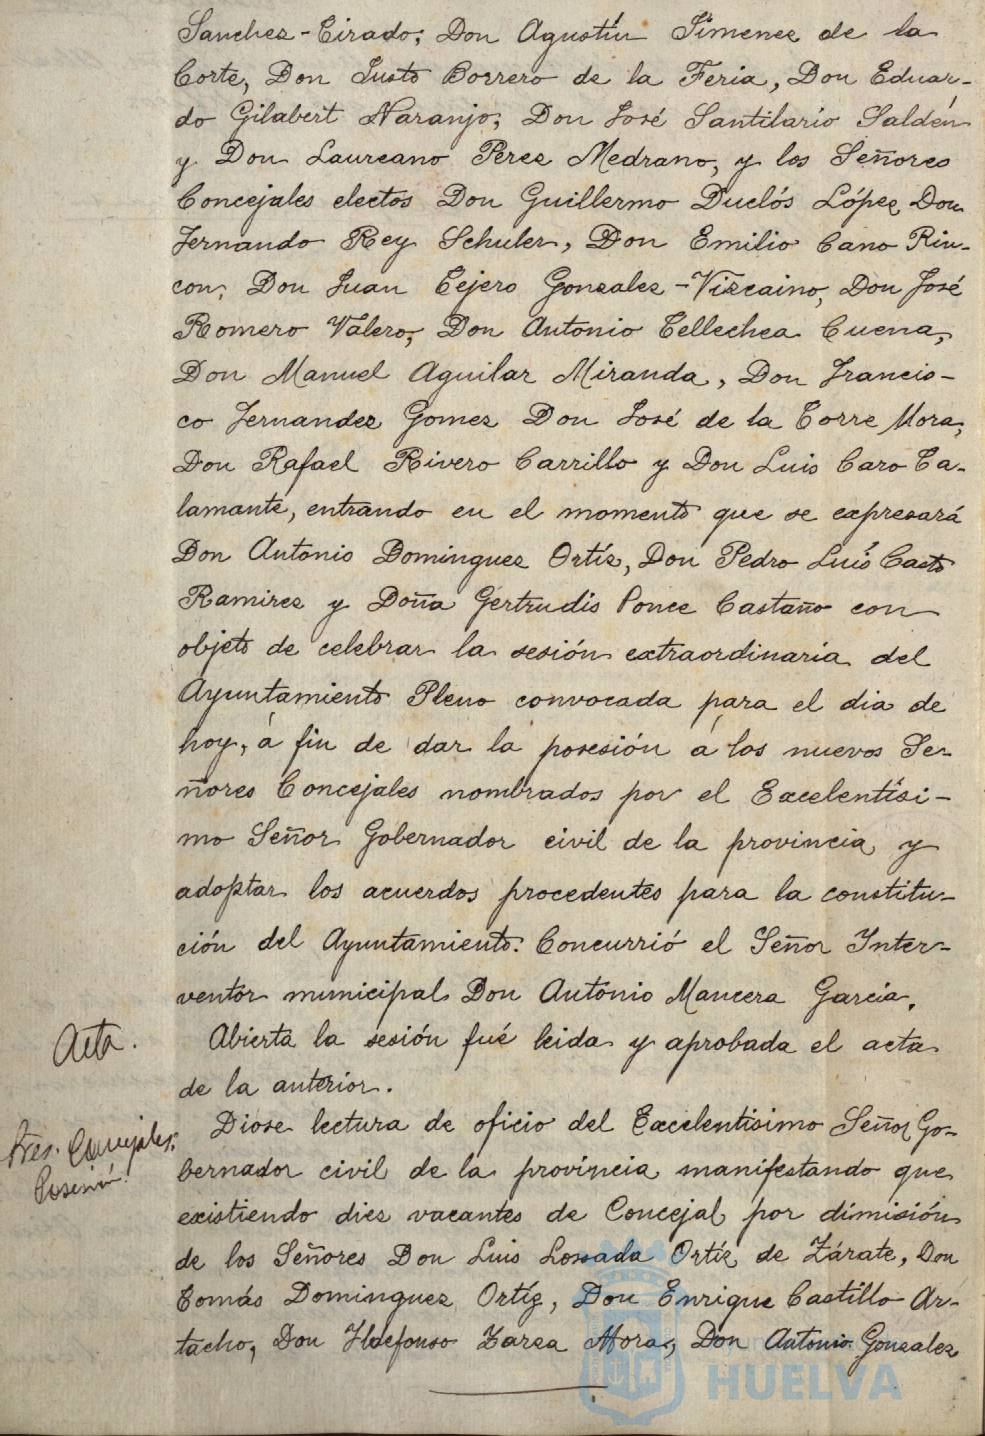 Sanchez-Tirado; Don Agustín Jimenez de la
Corte, Don Justo Borrero de la Feria, Don Eduar-
do Gilabert Naranjo; Don José Santilario Saldén
y Don Laureano Perez Medrano, y los Señores
Concejales electos Don Guillermo Duclós López, Don
Fernando Rey Schuler, Don Emilio Cano Rin-
con, Don Juan Tejero Gonzalez-Vizcaino, Don José
Romero Valero; Don Antonio Tellechea Cuena,
Don Manuel Aguilar Miranda, Don Francis-
co Fernandez Gomez Don José de la Torre Mora,
Don Rafael Rivero Carrillo y Don Luis Caro Ta-
lamante, entrando en el momento que se expresará
Don Antonio Dominguez Ortíz, Don Pedro Luís Casto
Ramirez y Doña Gertrudis Ponce Castaño con
objeto de celebrar la sesión extraordinaria del
Ayuntamiento Pleno convocada para el dia de
hoy, á fin de dar la posesión á los nuevos Se-
ñores Concejales nombrados por el Excelentísi-
mo Señor Gobernador civil de la provincia y
adoptar los acuerdos procedentes para la constitu-
ción del Ayuntamiento. Concurrió el Señor Inter-
ventor municipal Don Antonio Mancera García.
Acta.
Abierta la sesión fué leida y aprobada el acta
de la anterior.
Sres. Concejales.
Posesión.
Diose lectura de oficio del Excelentisimo Señor Go-
bernador civil de la provincia manifestando que
existiendo diez vacantes de Concejal por dimisión
de los Señores Don Luis Lossada Ortíz de Zárate, Don
Tomás Dominguez Ortíz, Don Enrique Castillo Ar-
tacho, Don Ildefonso Zarza Mora, Don Antonio Gonzalez
HUELVA